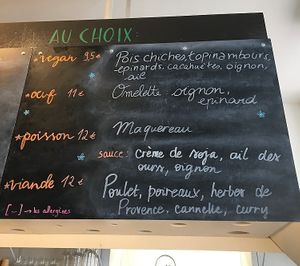 AU CHOIX
*vegan 9,5€ Pois chiches, topinambours,
epinards, cacahuètes, oignon,
ail
*œuf 11€ Omelette: oignon,
epinard
*poisson 12€ Maquereau
sauce: crème de soja, ail des
ours, oignon
*viande 12€ Poulet, poireaux, herbes de
Provence, cannelle, curry
[...] → les allergènes